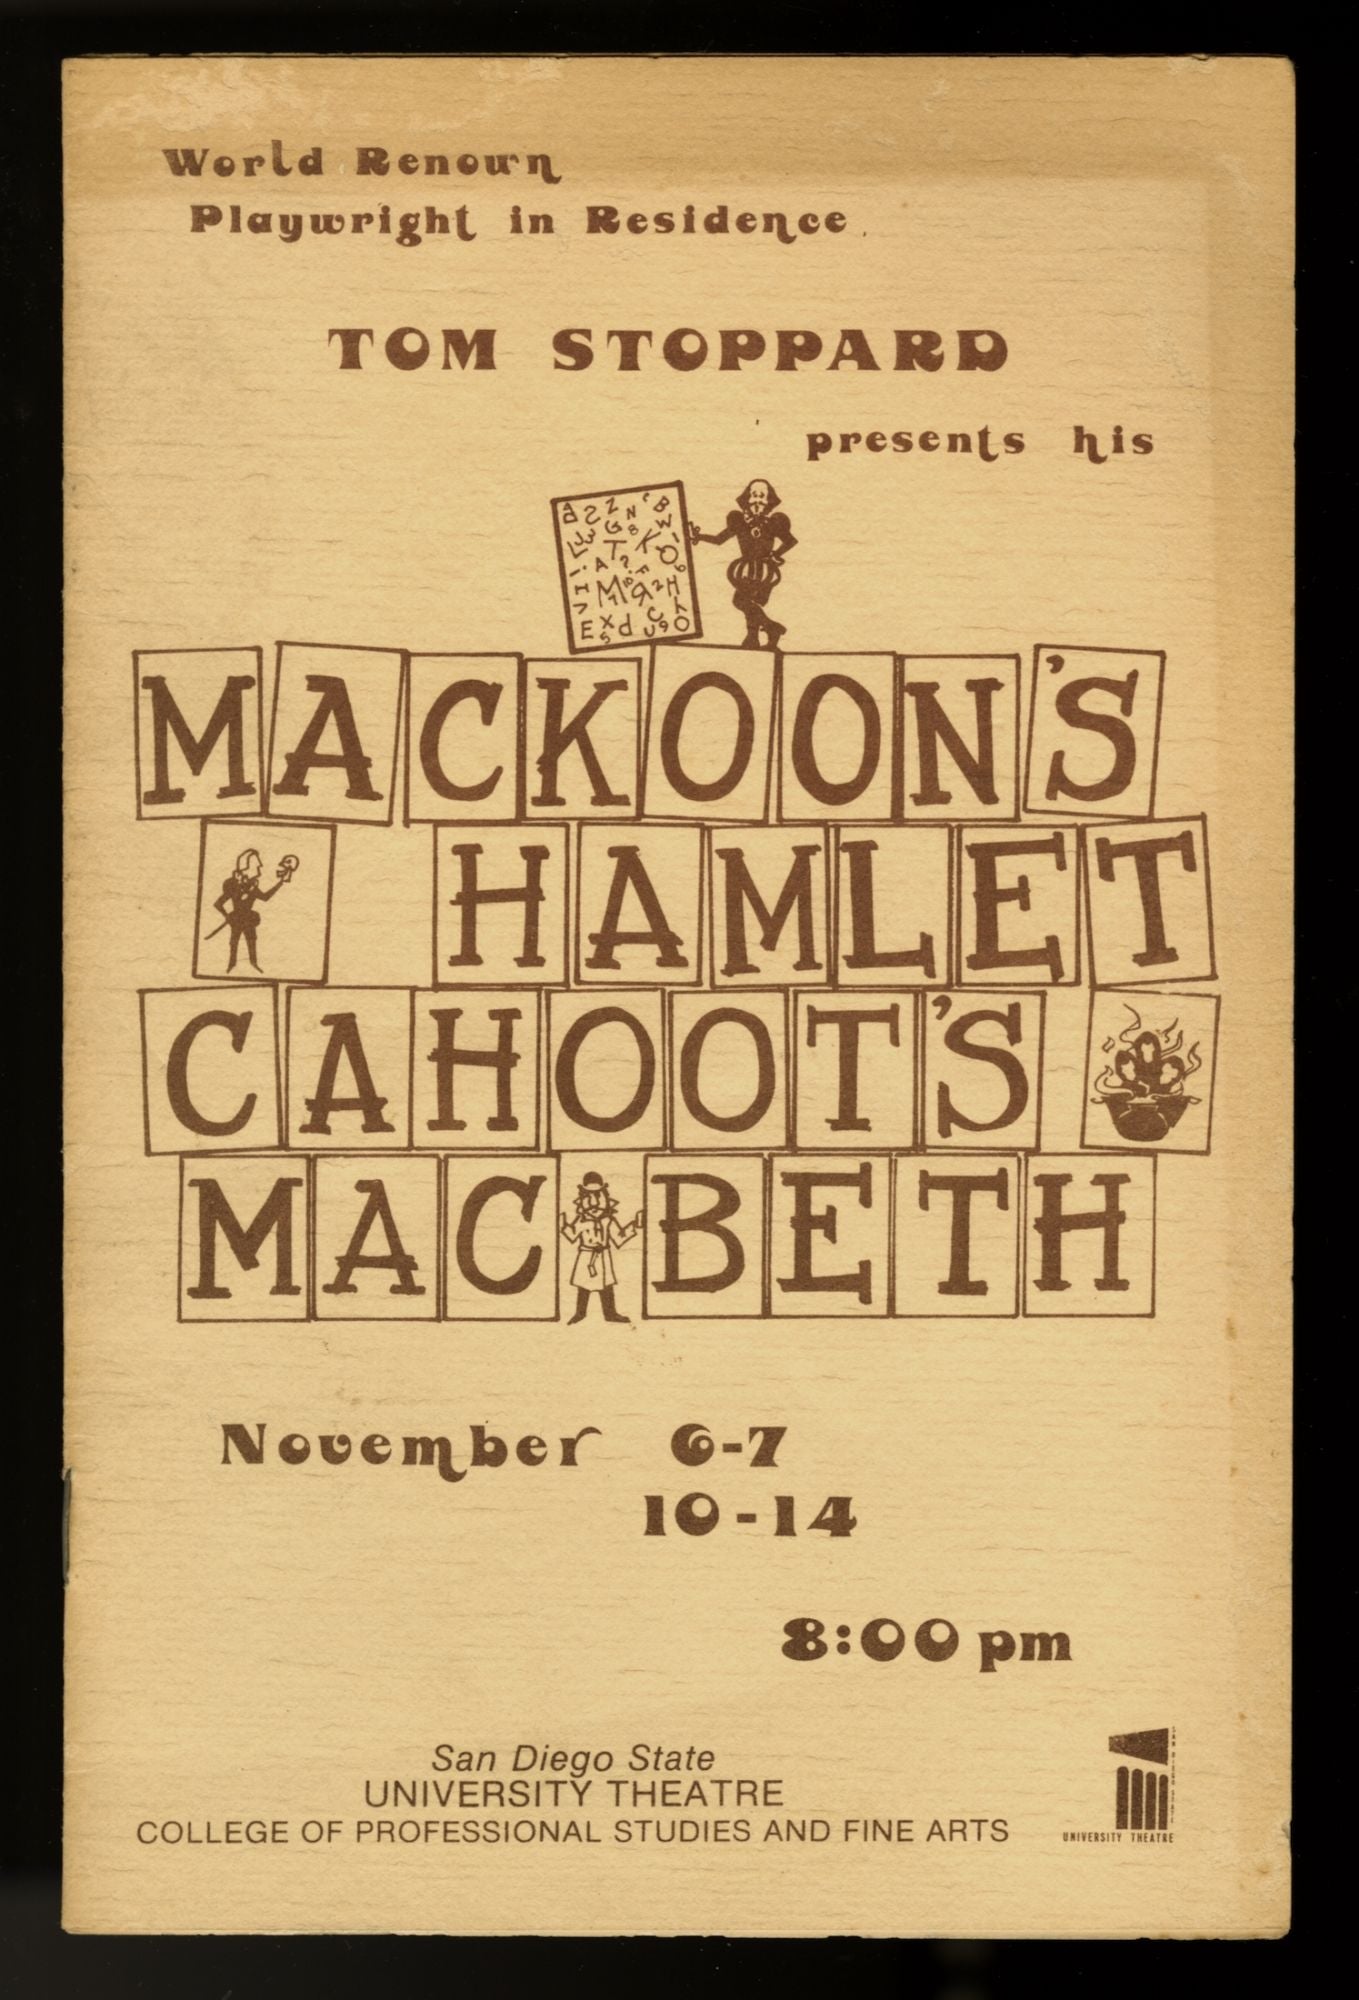 World Renown
Playwright in Residence
TOM STOPPARD
presents his
MACKOON'S
HAMLET
CAHOOT'S
MACBETH
November 6-7
10-14
8:00 pm
San Diego State
UNIVERSITY THEATRE
COLLEGE OF PROFESSIONAL STUDIES AND FINE ARTS
SAN DIEGO STATE
UNIVERSITY THEATRE